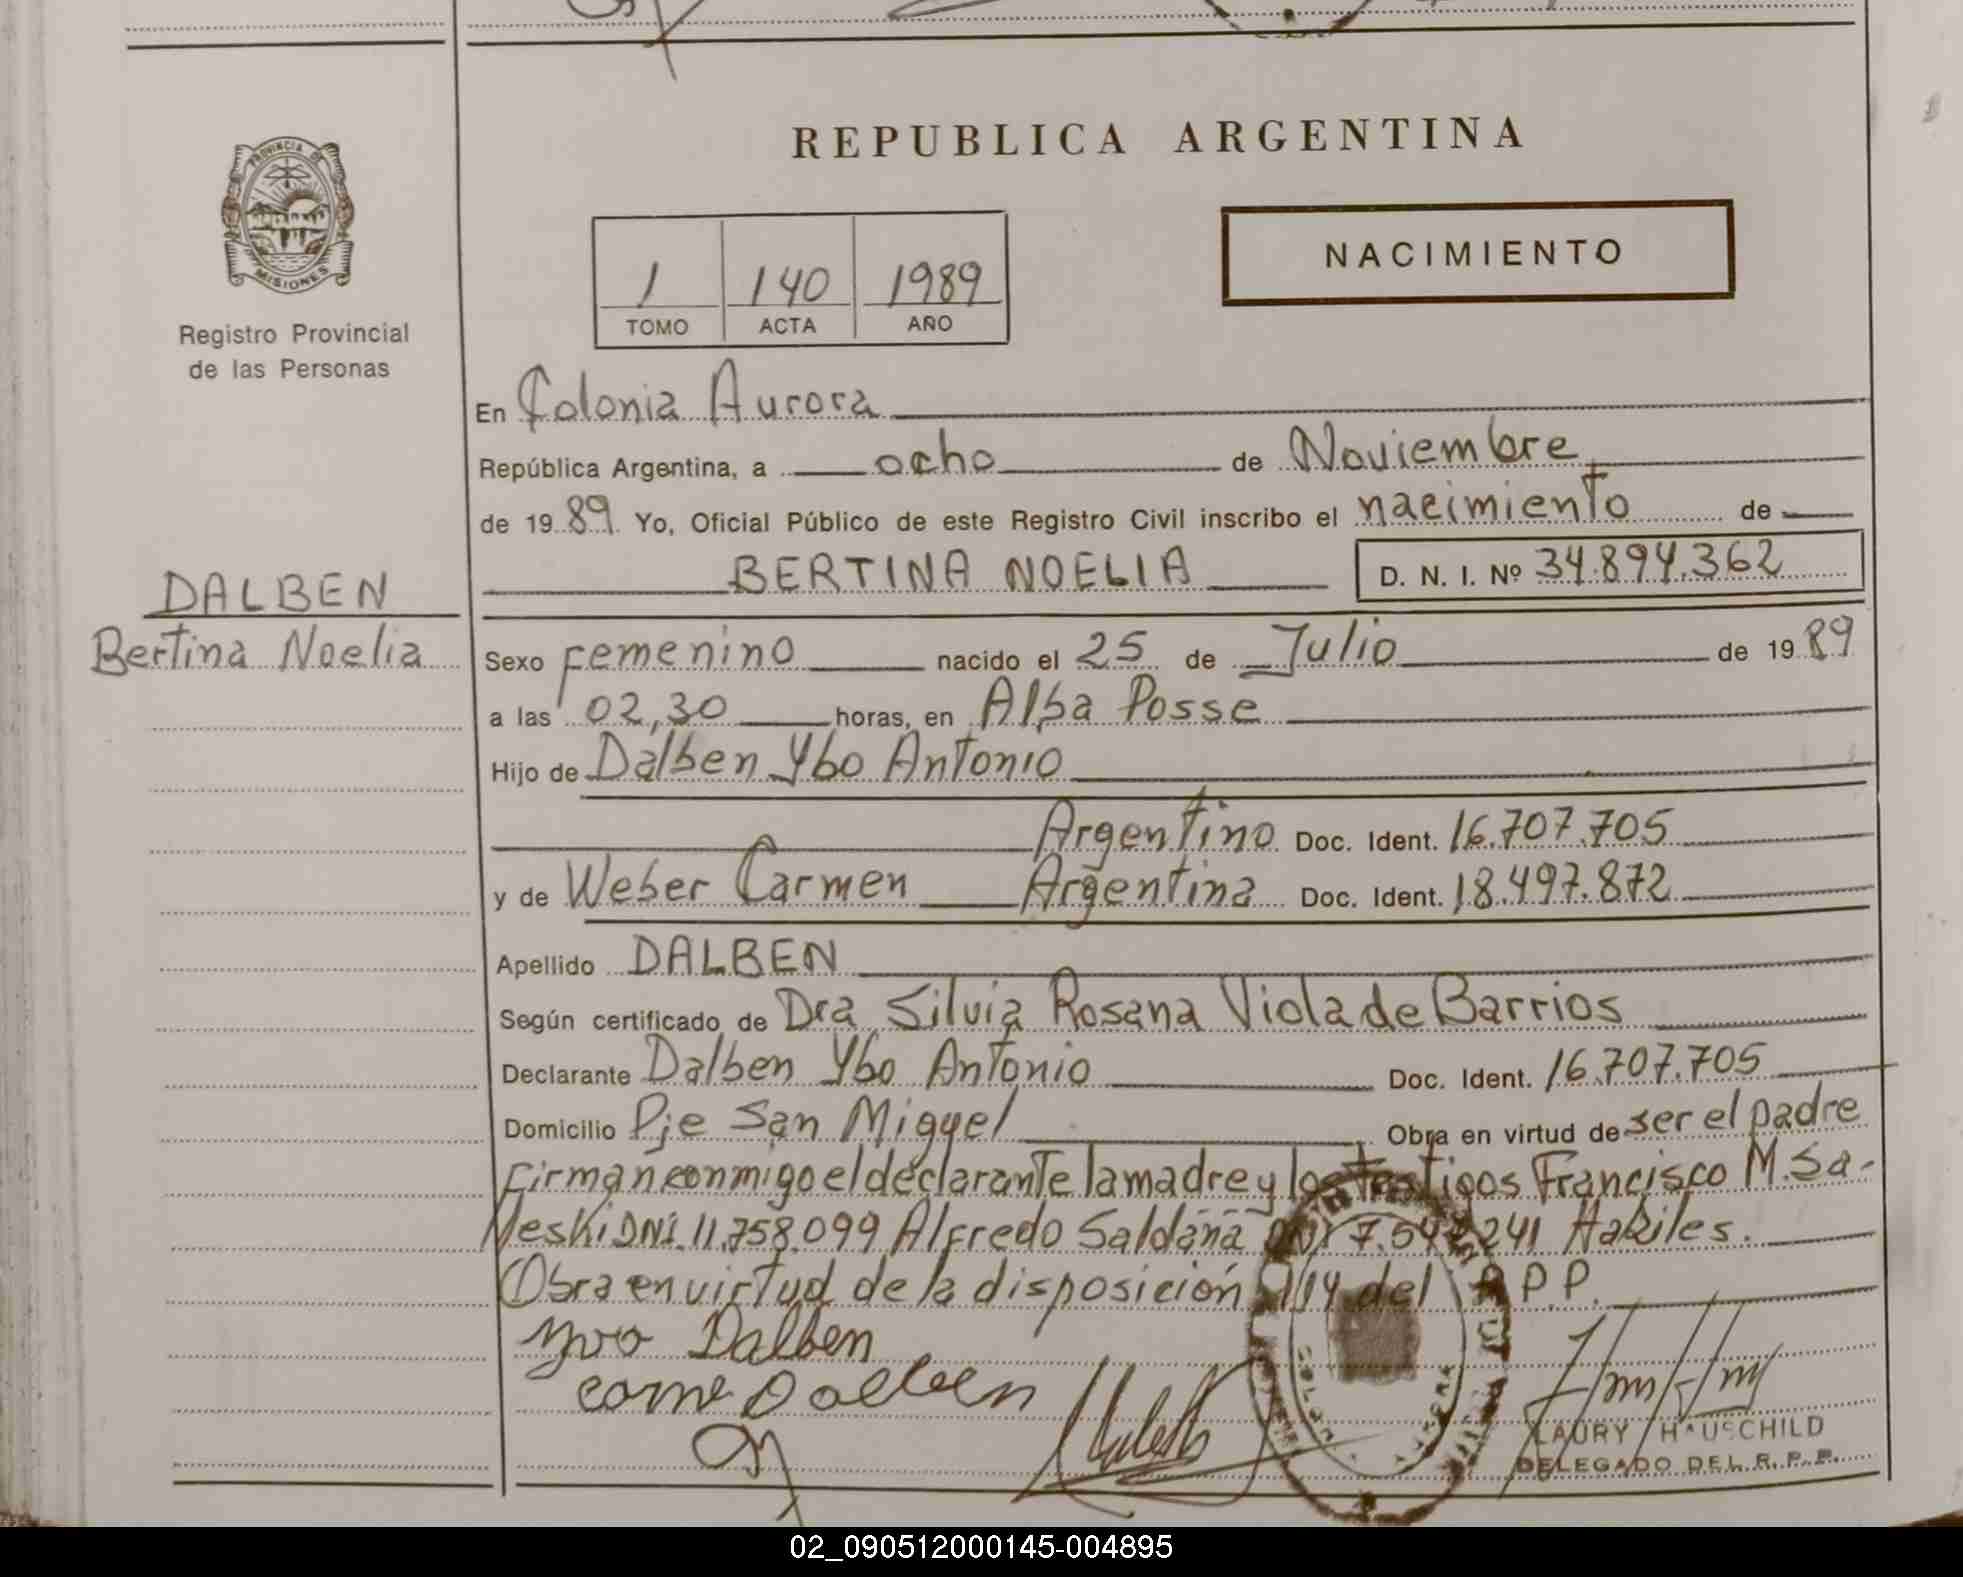 REPUBLICA ARGENTINA
PROVINCIA DE
MISIONES
Registro Provincial
de las Personas
1 140 1989
TOMO ACTA AÑO
NACIMIENTO
En Colonia Aurora
República Argentina, a ocho de Noviembre
de 1989 Yo, Oficial Público de este Registro Civil inscribo el nacimiento de
BERTINA NOELIA D. N. I. Nº 34.894.362
DALBEN
Bertina Noelia
Sexo Femenino nacido el 25 de Julio de 1989
a las 02,30 horas, en Alba Posse
Hijo de Dalben Ybo Antonio
Argentino Doc. Ident. 16.707.705
y de Weber Carmen Argentina Doc. Ident. 18.497.872
Apellido DALBEN
Según certificado de Dra Silvia Rosana Viola de Barrios
Declarante Dalben Ybo Antonio Doc. Ident. 16.707.705
Domicilio Pje San Miguel Obra en virtud de ser el padre
Firman conmigo el declarante la madre y los testigos Francisco M. Sa-
leski DNI 11.758.099 Alfredo Saldaña DNI 7.542.241 Habiles.
Obra en virtud de la disposición 114 del R.P.P.
Yvo Dalben
Dalben
COLONIA AURORA
LAURY HAUSCHILD
DELEGADO DEL R. P. P.
02_090512000145-004895